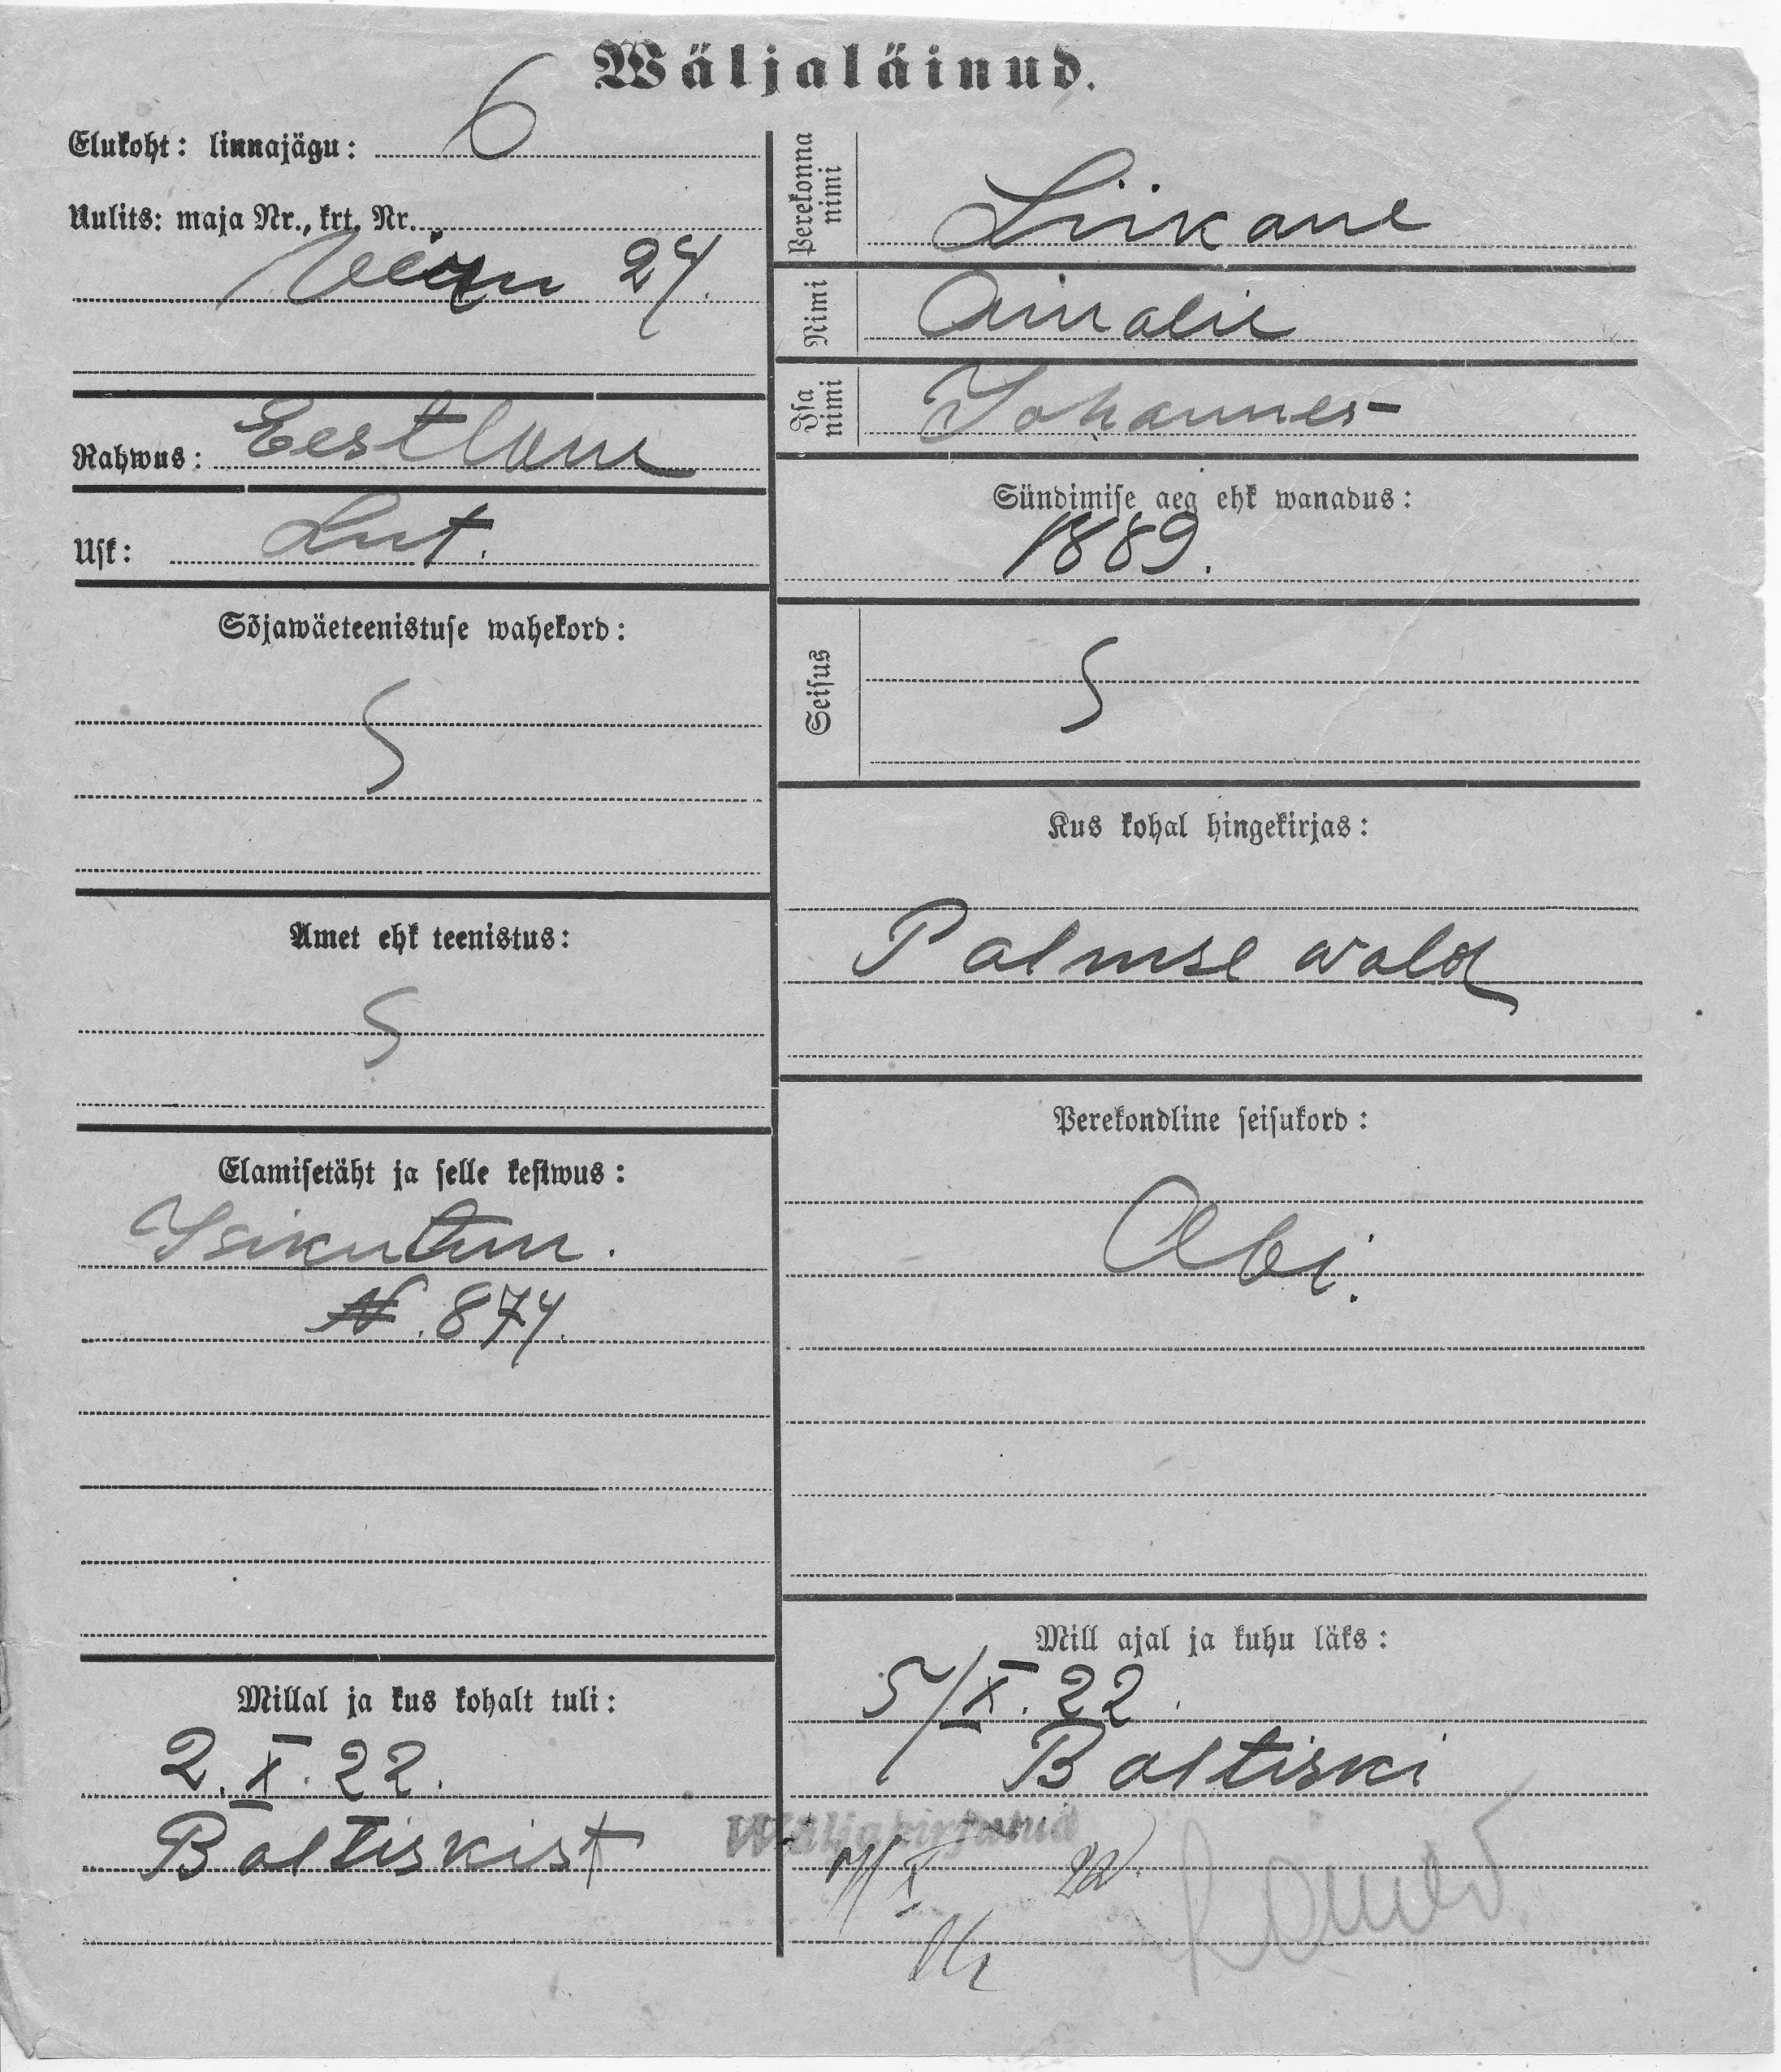 Wäljaläinud.
Elukoht: linnajägu: 6
Uulits: maja Nr., krt. Nr.
24.
Rahwus: Eestlane
Usk: Lut.
Sõjawäeteenistuse wahekord:
Amet ehk teenistus:
Elamisetäht ja selle kestwus:
Isikutun.
N. 874.
Millal ja kus kohalt tuli:
2. X. 22.
Baltiskist
Perekonna nimi Liikane
Nimi Amalie
Isa nimi Johannes
Sündimise aeg ehk wanadus:
1889.
Seisus
Kus kohal hingekirjas:
Palmse wald
Perekondline seisukord:
Abi.
Mill ajal ja kuhu läks:
5/X. 22.
Baltiski
Wäljakirjutud
X 22.